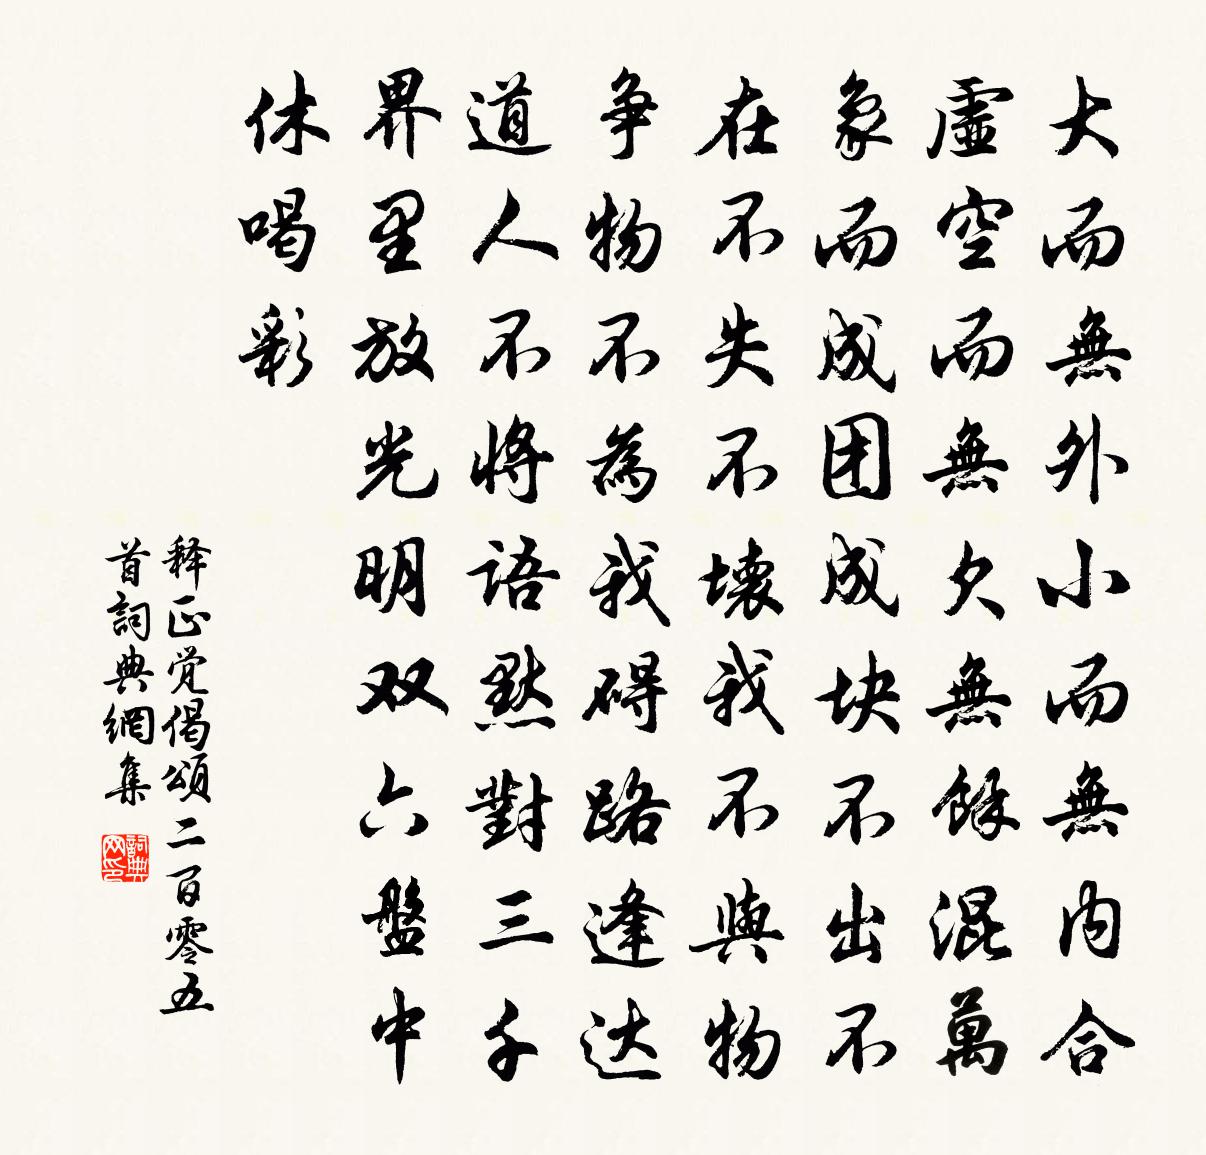 大而無外小而無内合
虛空而無欠無餘混萬
象而成团成块不出不
在不失不壞我不與物
争物不為我碍路逢达
道人不將語默對三千
界里放光明双六盤中
休喝彩
释正觉偈頌二百零五
首詞典網集
詞典网印